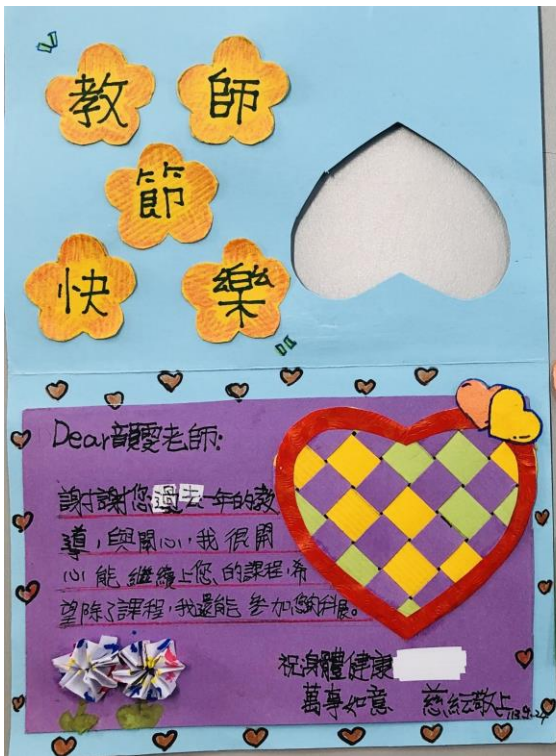 教師
節
快樂
Dear 顏雯老師:
謝謝您過去一年的教
導,與關心,我很開
心能繼續上您的課程,希
望除了課程,我還能參加您的科展。
祝身體健康
萬事如意 慈紜敬上 113.9.24